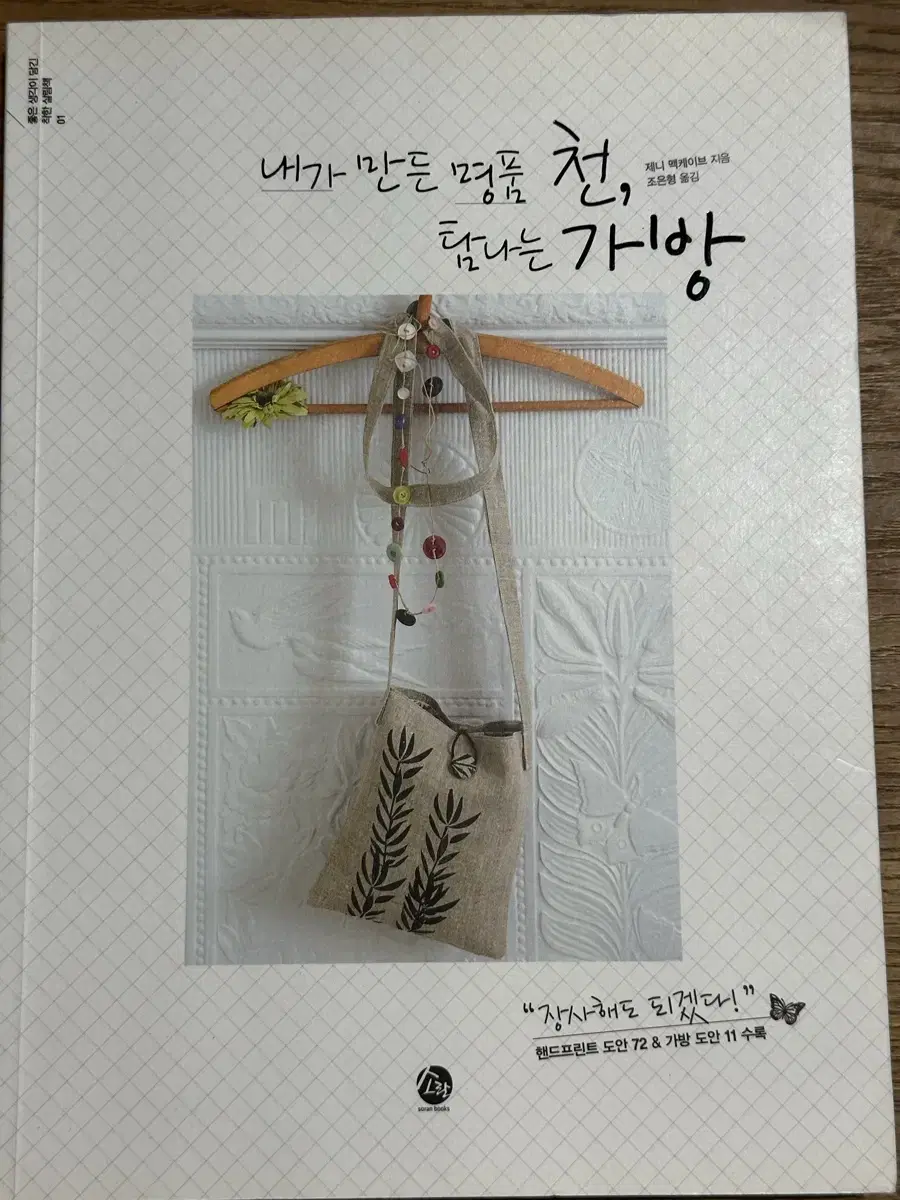 좋은 생각이 담긴
착한 살림책
01
내가 만든 명품 천,
탐나는 가방
제니 맥케이브 지음
조은형 옮김
“장사해도 되겠다!”
핸드프린트 도안 72 & 가방 도안 11 수록
소란
soran books